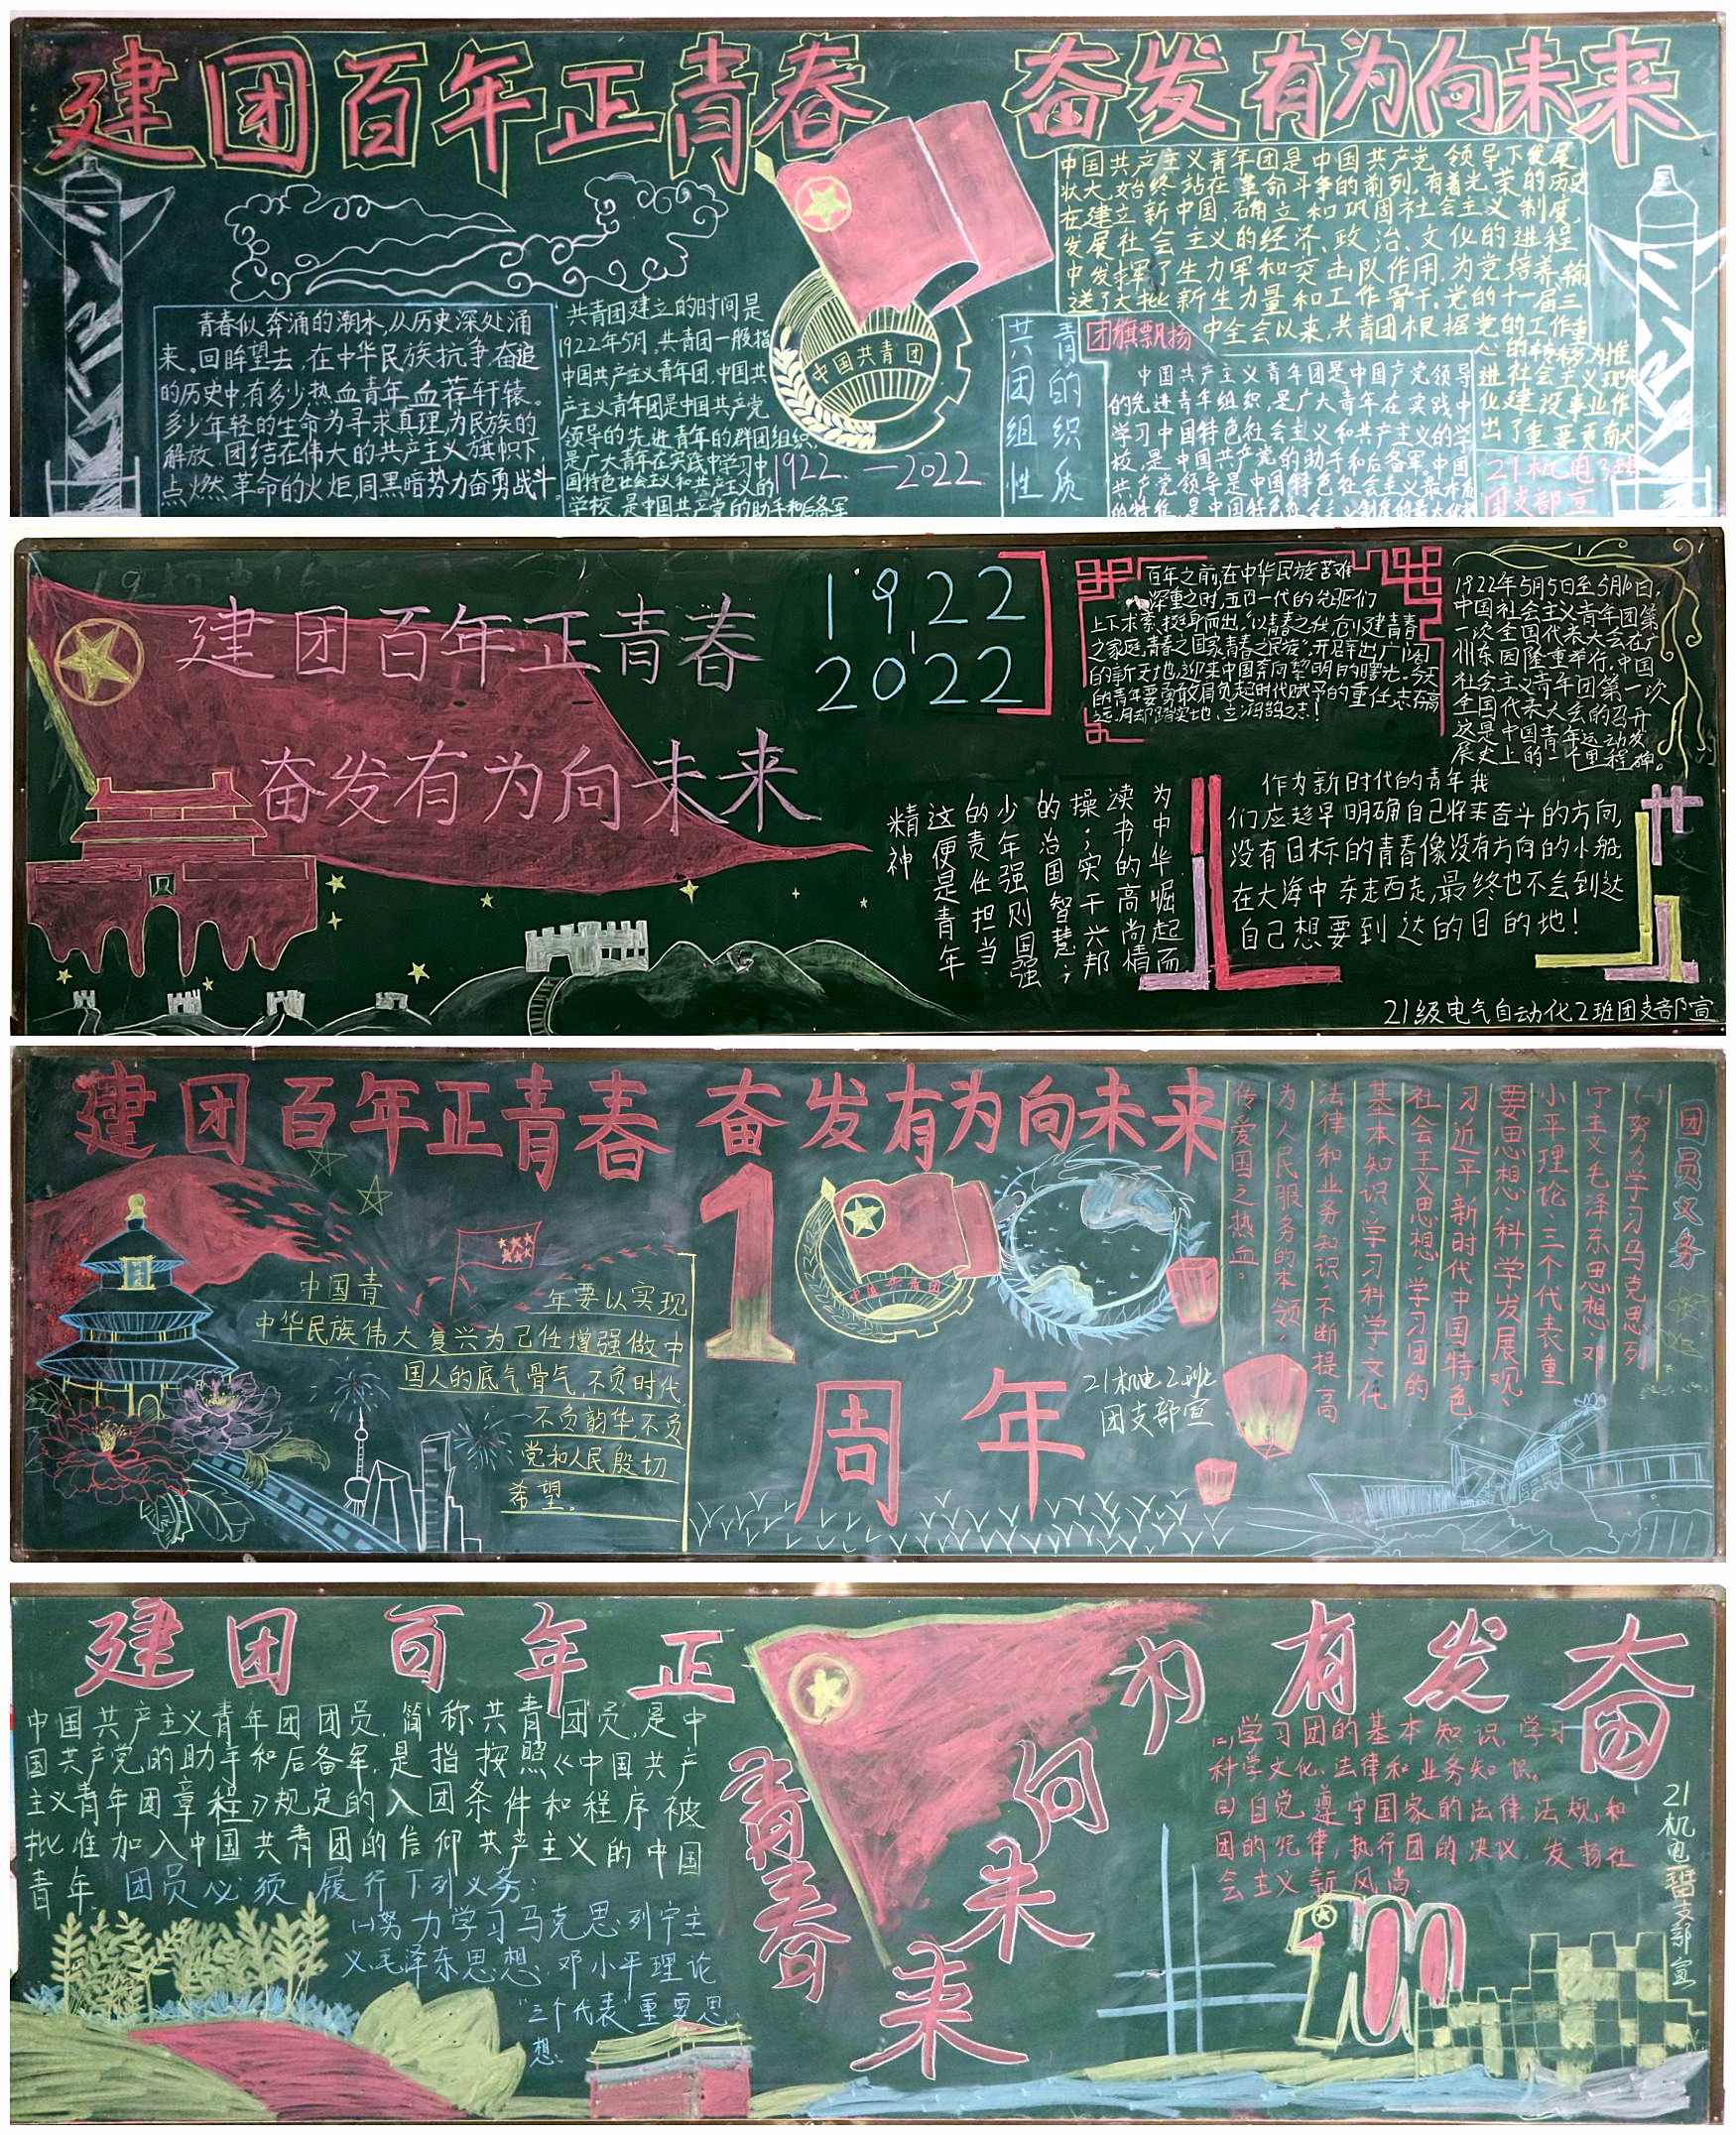 建团百年正青春 奋发有为向未来
青春似奔涌的潮水,从历史深处涌
来。回眸望去,在中华民族抗争奋追
的历史中,有多少热血青年血荐轩辕。
多少年轻的生命为寻求真理,为民族的
解放,团结在伟大的共产主义旗帜下,
点燃革命的火炬,同黑暗势力奋勇战斗
共青团建立的时间是
1922年5月,共青团一般指
中国共产主义青年团,中国共
产主义青年团是中国共产党
领导的先进青年的群团组织,
是广大青年在实践中学习中
国特色社会主义和共产主义的
学校,是中国共产党的助手和后备军
中国共青团
1922.—2022.
共青团的组织性质
中国共产主义青年团是中国共产党领导下发展
状大,始终站在革命斗争的前列,有着光荣的历史
在建立新中国,确立和巩固社会主义制度,
发展社会主义的经济、政治、文化的进程
中发挥了生力军和突击队作用,为党培养、输
送了大批新生力量和工作骨干,党的十一届三
中全会以来,共青团根据党的工作重
心的转移,为推
进社会主义现代
化建设事业作
出了重要贡献
团旗飘扬
中国共产主义青年团是中国产党领导
的先进青年组织,是广大青年在实践中
学习中国特色社会主义和共产主义的学
校,是中国共产党的助手和后备军。中国
共产党领导是中国特色社会主义最本质
的特征,是中国特色社会主义制度的最大优势
21机电3班
团支部宣
建团百年正青春
奋发有为向未来
1922
2022
百年之前,在中华民族苦难
深重之时,五四一代的先驱们
上下求索,挺身而出,以青春之我,创建青春
之家庭,青春之国家,青春之民族,开辟出广阔
的新天地,迎来中国奔向黎明的曙光。今天
的青年要勇敢肩负起时代赋予的重任,志存高
远,脚踏实地、立鸿鹄之志!
1922年5月5日至5月10日,
中国社会主义青年团第
一次全国代表大会在广
州东园隆重举行,中国
社会主义青年团第一次
全国代表大会的召开
这是中国青年运动发
展史上的一个里程碑。
为中华崛起而
读书的高尚情
操;实干兴邦
的治国智慧;
少年强则国强
的责任担当
这便是青年
精神
作为新时代的青年我
们应趁早明确自己将来奋斗的方向,
没有目标的青春像没有方向的小船
在大海中东走西走,最终也不会到达
自己想要到达的目的地!
21级电气自动化2班团支部宣
建团百年正青春 奋发有为向未来
中国青年要以实现
中华民族伟大复兴为己任增强做中
国人的底气骨气,不负时代
不负韵华,不负
党和人民殷切
希望。
中国共青团
1
周年
21机电2班
团支部宣
团员义务
(一)努力学习马克思列
宁主义毛泽东思想、邓
小平理论、三个代表重
要思想、科学发展观、
习近平新时代中国特色
社会主义思想,学习团的
基本知识,学习科学文化
法律和业务知识,不断提高
为人民服务的本领,
传爱国之热血。
建团百年正青春
奋发有为向未来
中国共产主义青年团团员,简称共青团员,是中
国共产党的助手和后备军,是指按照《中国共产
主义青年团章程》规定的入团条件和程序被
批准加入中国共青团的信仰共产主义的中国
青年,团员必须履行下列义务:
(一)努力学习马克思列宁主
义、毛泽东思想、邓小平理论
"三个代表"重要思
想、
(二)学习团的基本知识,学习
科学文化、法律和业务知识。
(三)自觉遵守国家的法律法规和
团的纪律,执行团的决议,发扬社
会主义新风尚
100